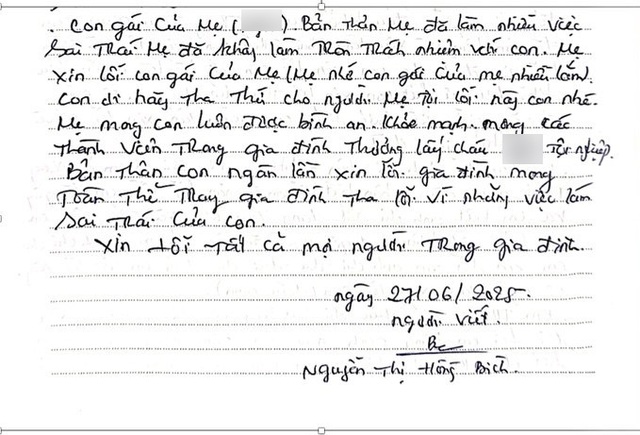 Con gái Của Mẹ ( ). Bản thân Mẹ đã làm nhiều việc
Sai Trái Mẹ đã không làm Tròn Trách nhiệm với con. Mẹ
xin lỗi con gái Của Mẹ (Mẹ nhớ con gái Của mẹ nhiều lắm)
Con ơi hãy Tha Thứ cho người Mẹ Tội lỗi này con nhé.
Mẹ mong con luôn được bình an. Khỏe mạnh. mong các
thành viên Trong gia đình Thương lấy cháu Tội nghiệp.
Bản Thân Con ngàn lần xin lỗi gia đình mong
Toàn Thể gia đình tha lỗi vì những việc làm
Sai Trái Của Con.
Xin lỗi Tất cả mọi người Trong gia đình.
ngày 27/06/2025.
người viết.
Nguyễn Thị Hồng Bích.